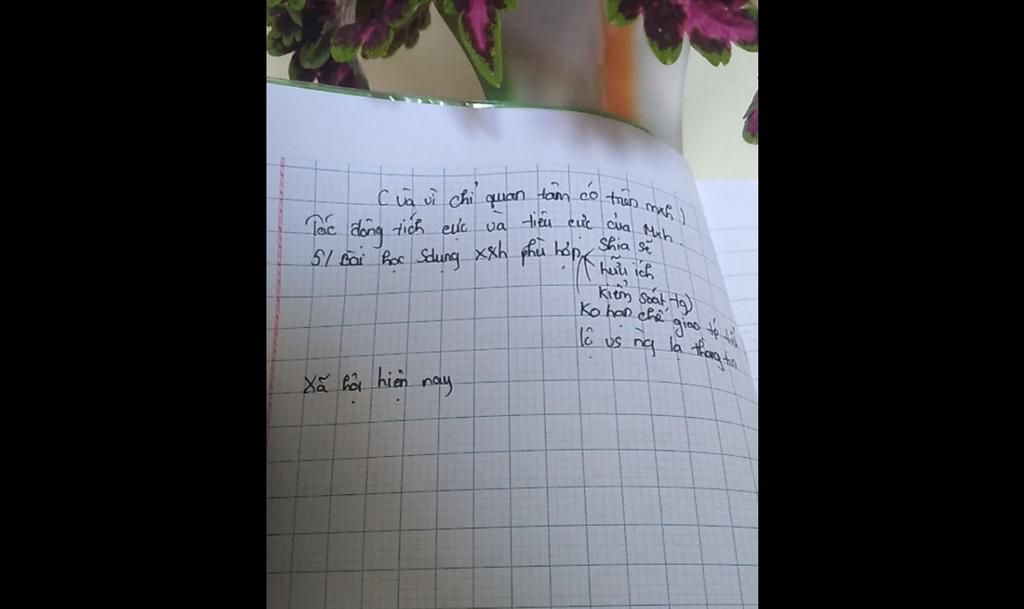 ( Và vì chỉ quan tâm có trên mxh )
Tác động tích cực và tiêu cực của Mxh.
5/ Bài học sdụng xxh phù hợp
shia sẽ
hữu ích
kiểm soát tg)
Ko hạn chế giao tp
lộ vs ng lạ thông tin
Xã hội hiện nay